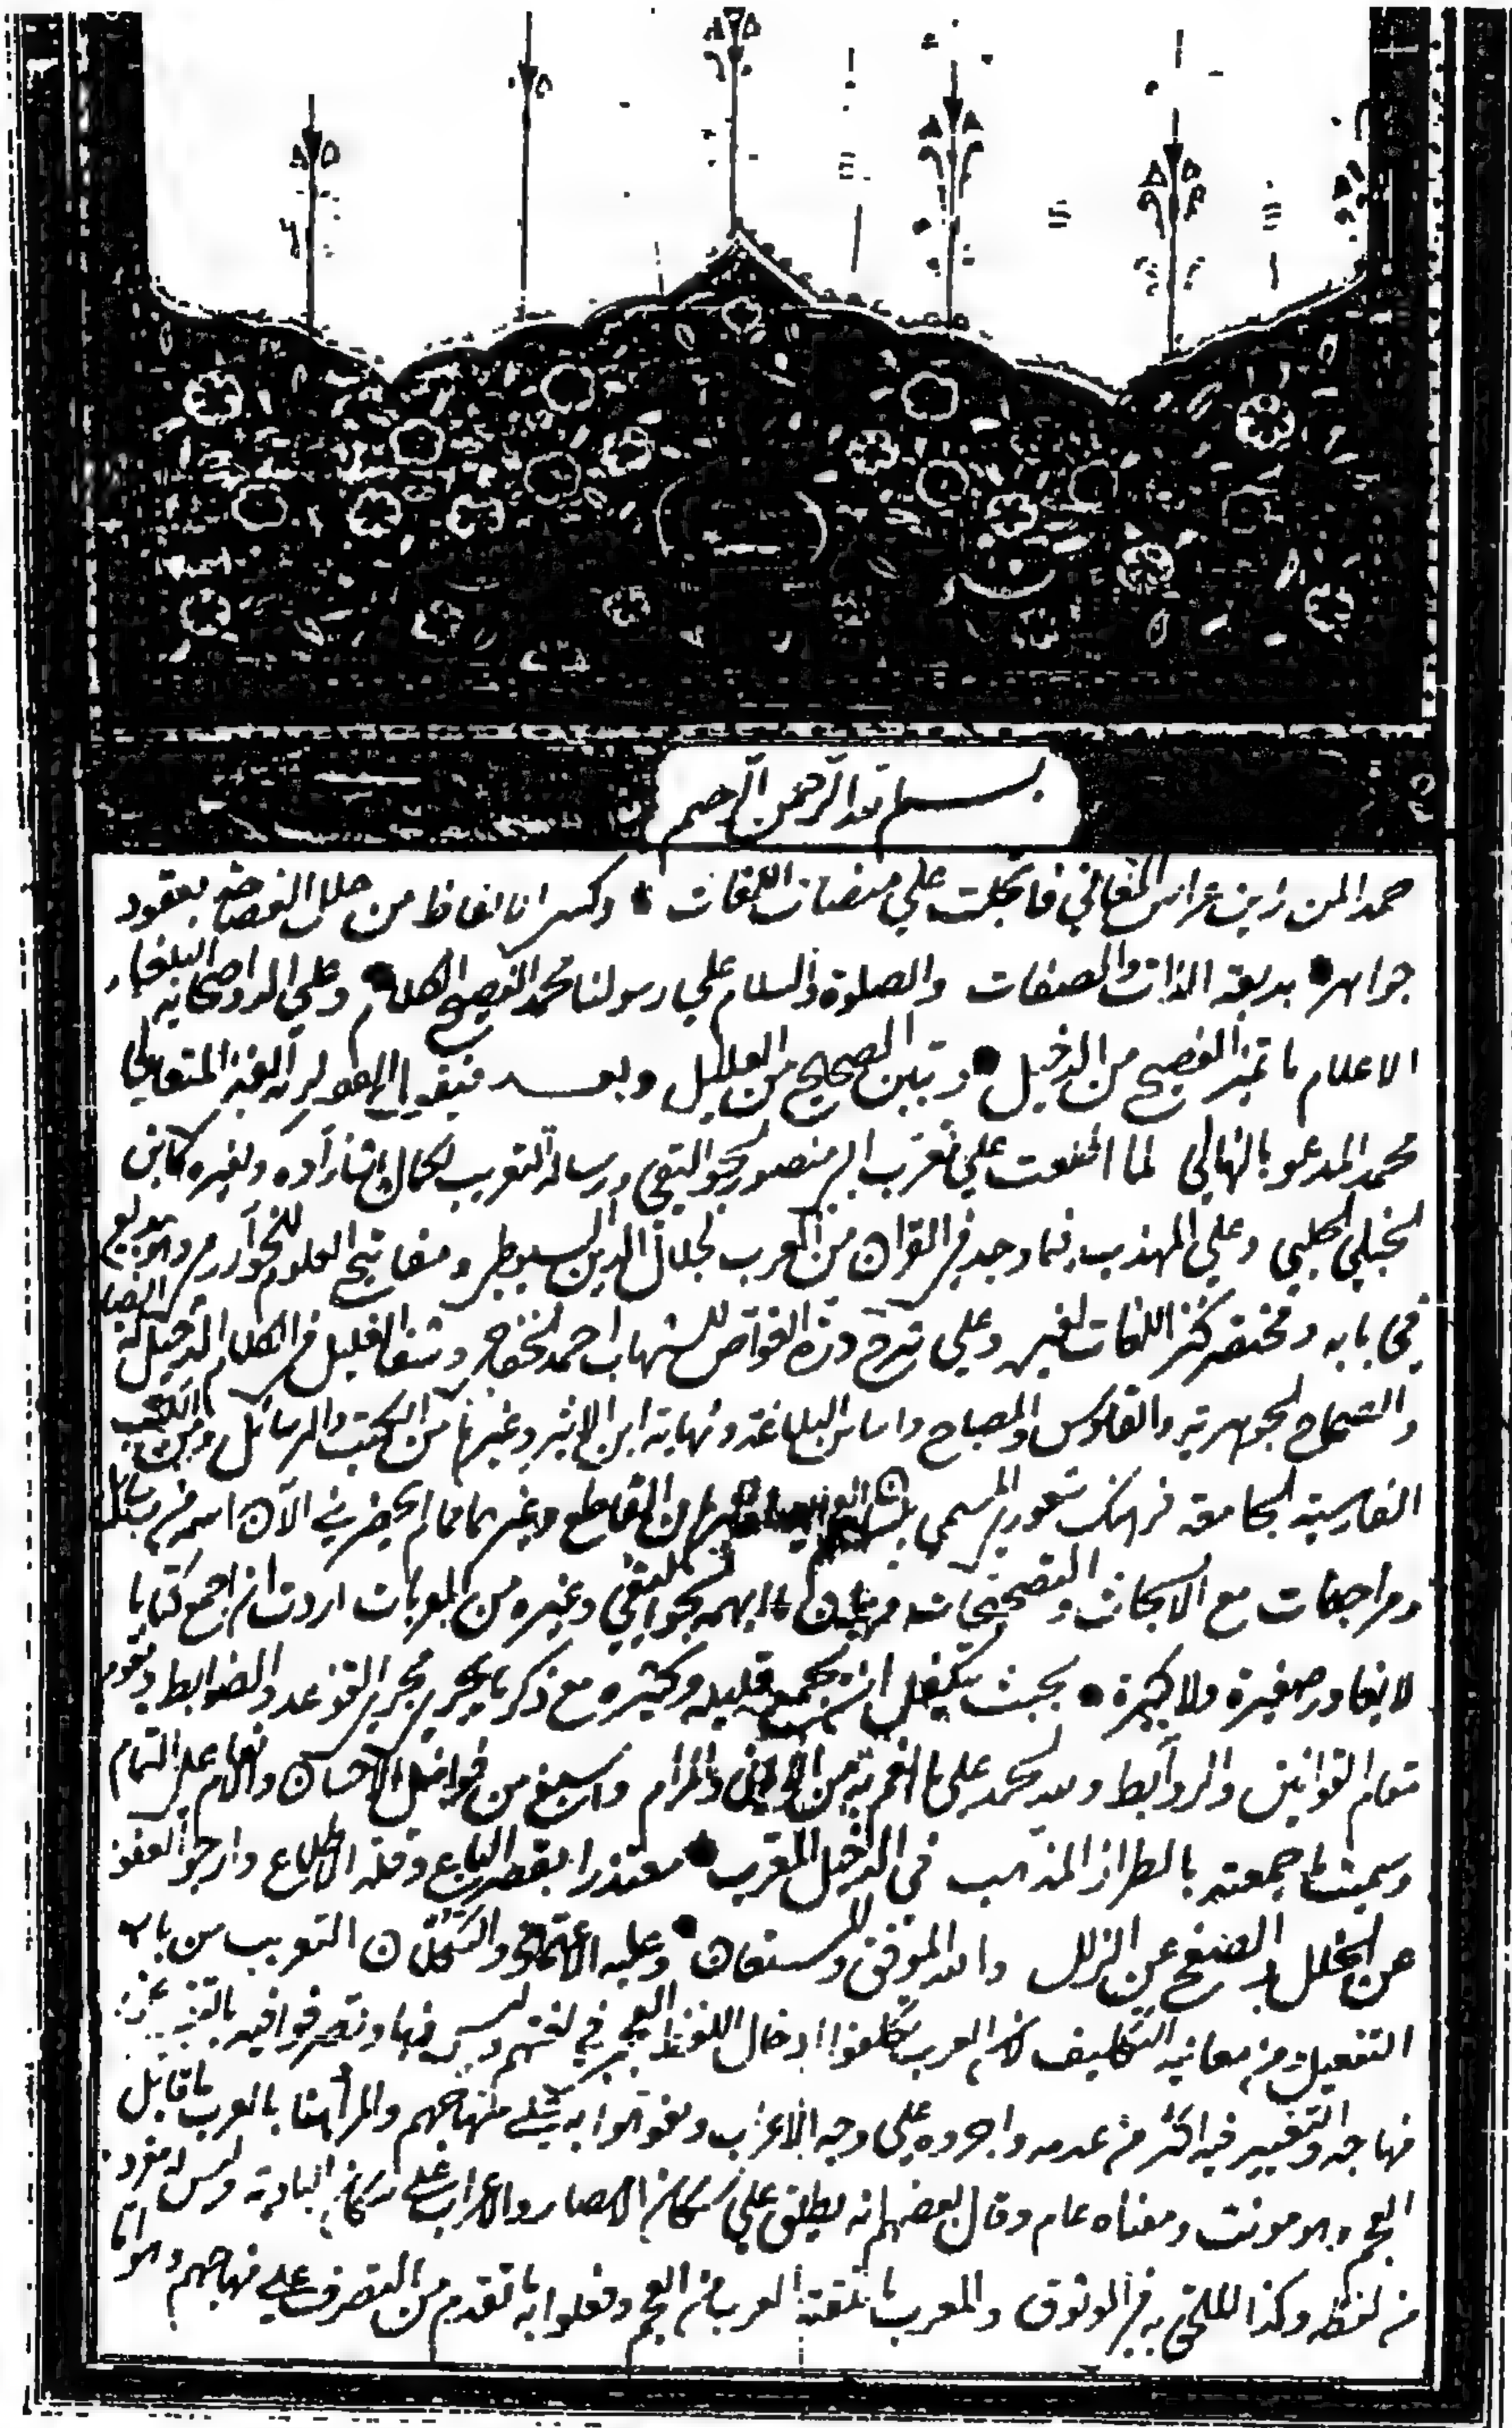 بسم الله الرحمن الرحيم
حمدا لمن زين عرائس المعاني فانجلت على منصات اللغات وكسى الالفاظ من حلل الفصاحة بعقود
جواهر بديعة الذات والصفات والصلوة والسلام علي رسولنا محمد الفصيح الكلام وعلي اله واصحابه البلغاء
الاعلام ما تميز الفصيح من الدخيل وتبين الصحيح من العليل وبعد فيقول الى ربه الغني المتعالي
محمد المدعو بالنهالي لما اطلعت علي معرب ابي منصور الجواليقي ورسالة التعريب لكمال باشا زاده ولغيره كابن
الحنبلي الحلبي وعلي المهذب فيما وجد في القران من المعرب لجلال الدين السيوطي ومفاتيح العلوم للخوارزمي وهو بديع
في بابه ومختصر كنز اللغات لغيره وعلي شرح درة الغواص للشهاب احمد الخفاجي وشفا الغليل في الكلام الدخيل له
والصحاح الجوهرية والقاموس والمصباح واساس البلاغة ونهاية ابن الاثير وغيرها من الكتب والرسائل ومن الكتب
الفارسية الجامعة فرهنك شعوري المسمي بلسان البرهان القاطع وغيرهما مما لم يحضرني الآن اسمه في رسائل
ومراجعات مع الابحاث والتصحيحات ما اهمه الجواليقي وغيره من المعربات اردت ان اجمع كتابا
لا يغادر صغيرة ولا كبيرة بحيث يتكفل ان يجمع قليله وكثيره مع ذكر ما يجري مجري القواعد والضوابط ويقوم
مقام القوانين والروابط ولله الحمد علي ما والمرام واسبغ من فواضل الاحسان والانعام علي التمام
وسميت ما جمعته بالطراز المذهب في الدخيل المعرب معتذرا بقصر الباع وقلة الاطلاع وارجو العفو
عن الخلل والصفح عن الزلل والله الموفق والمستعان وعليه الاعتماد والتكلان التعريب من باب
التفعيل ومن معانيه التكليف كان العرب تكلفوا ادخال اللفظ العجمي في لغتهم وليس فيها وتصرفوا فيه بالتغيير عن
منهاجه والتغيير فيه اكثر من عدمه واجروه علي وجه الاعراب وتفوهوا به علي منهاجهم والمراد هنا بالعرب ما قابل
العجم وهو مونث ومعناه عام وقال بعضهم انه يطلق علي سكان الامصار والاعراب علي سكان البادية وليس له مفرد
من لفظه وكذا به في الموثوق والمعرب ما تلقته العرب من العجم وفعلوا به ما تقدم من التصرف علي منهاجهم وهو اما